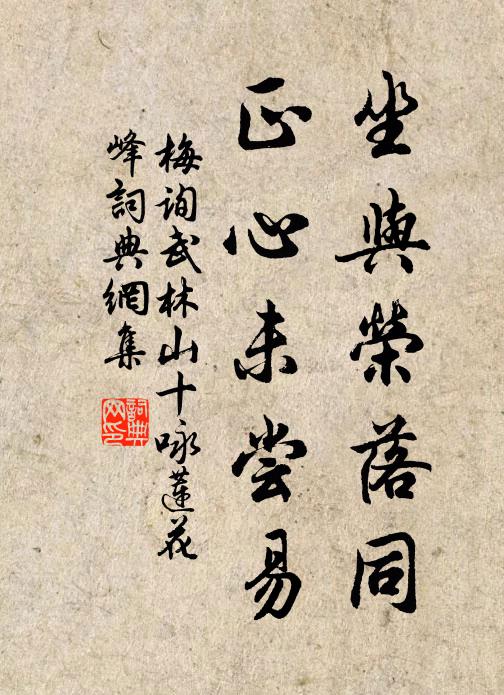 坐與榮落同
正心未尝易
梅询武林山十咏蓮花
峰詞典網集
詞典
网印